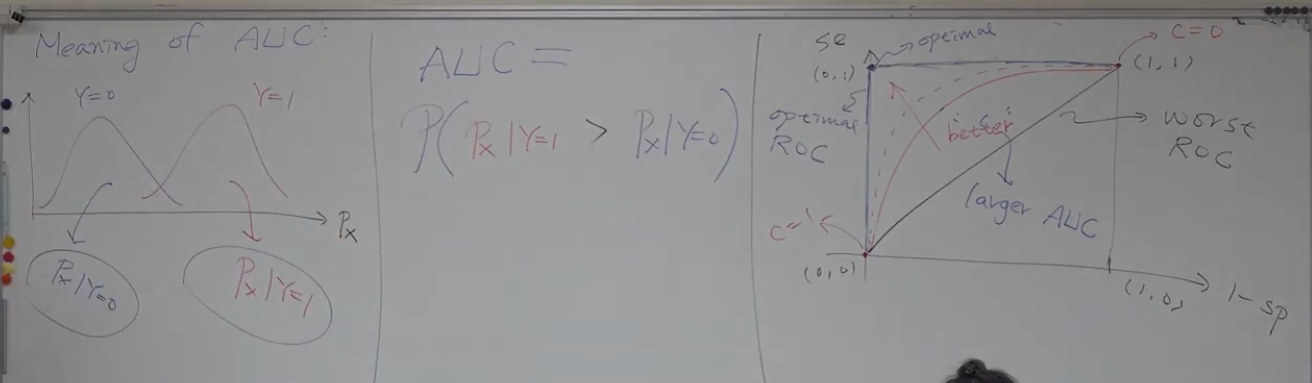 Meaning of AUC:
Y=0
Y=1
Px
Px|Y=0
Px|Y=1
AUC =
P(Px|Y=1 > Px|Y=0)
se
optimal
c=0
(0,1)
(1,1)
optimal
ROC
"better"
worst
ROC
larger AUC
c=1
(0,0)
(1,0)
1-sp